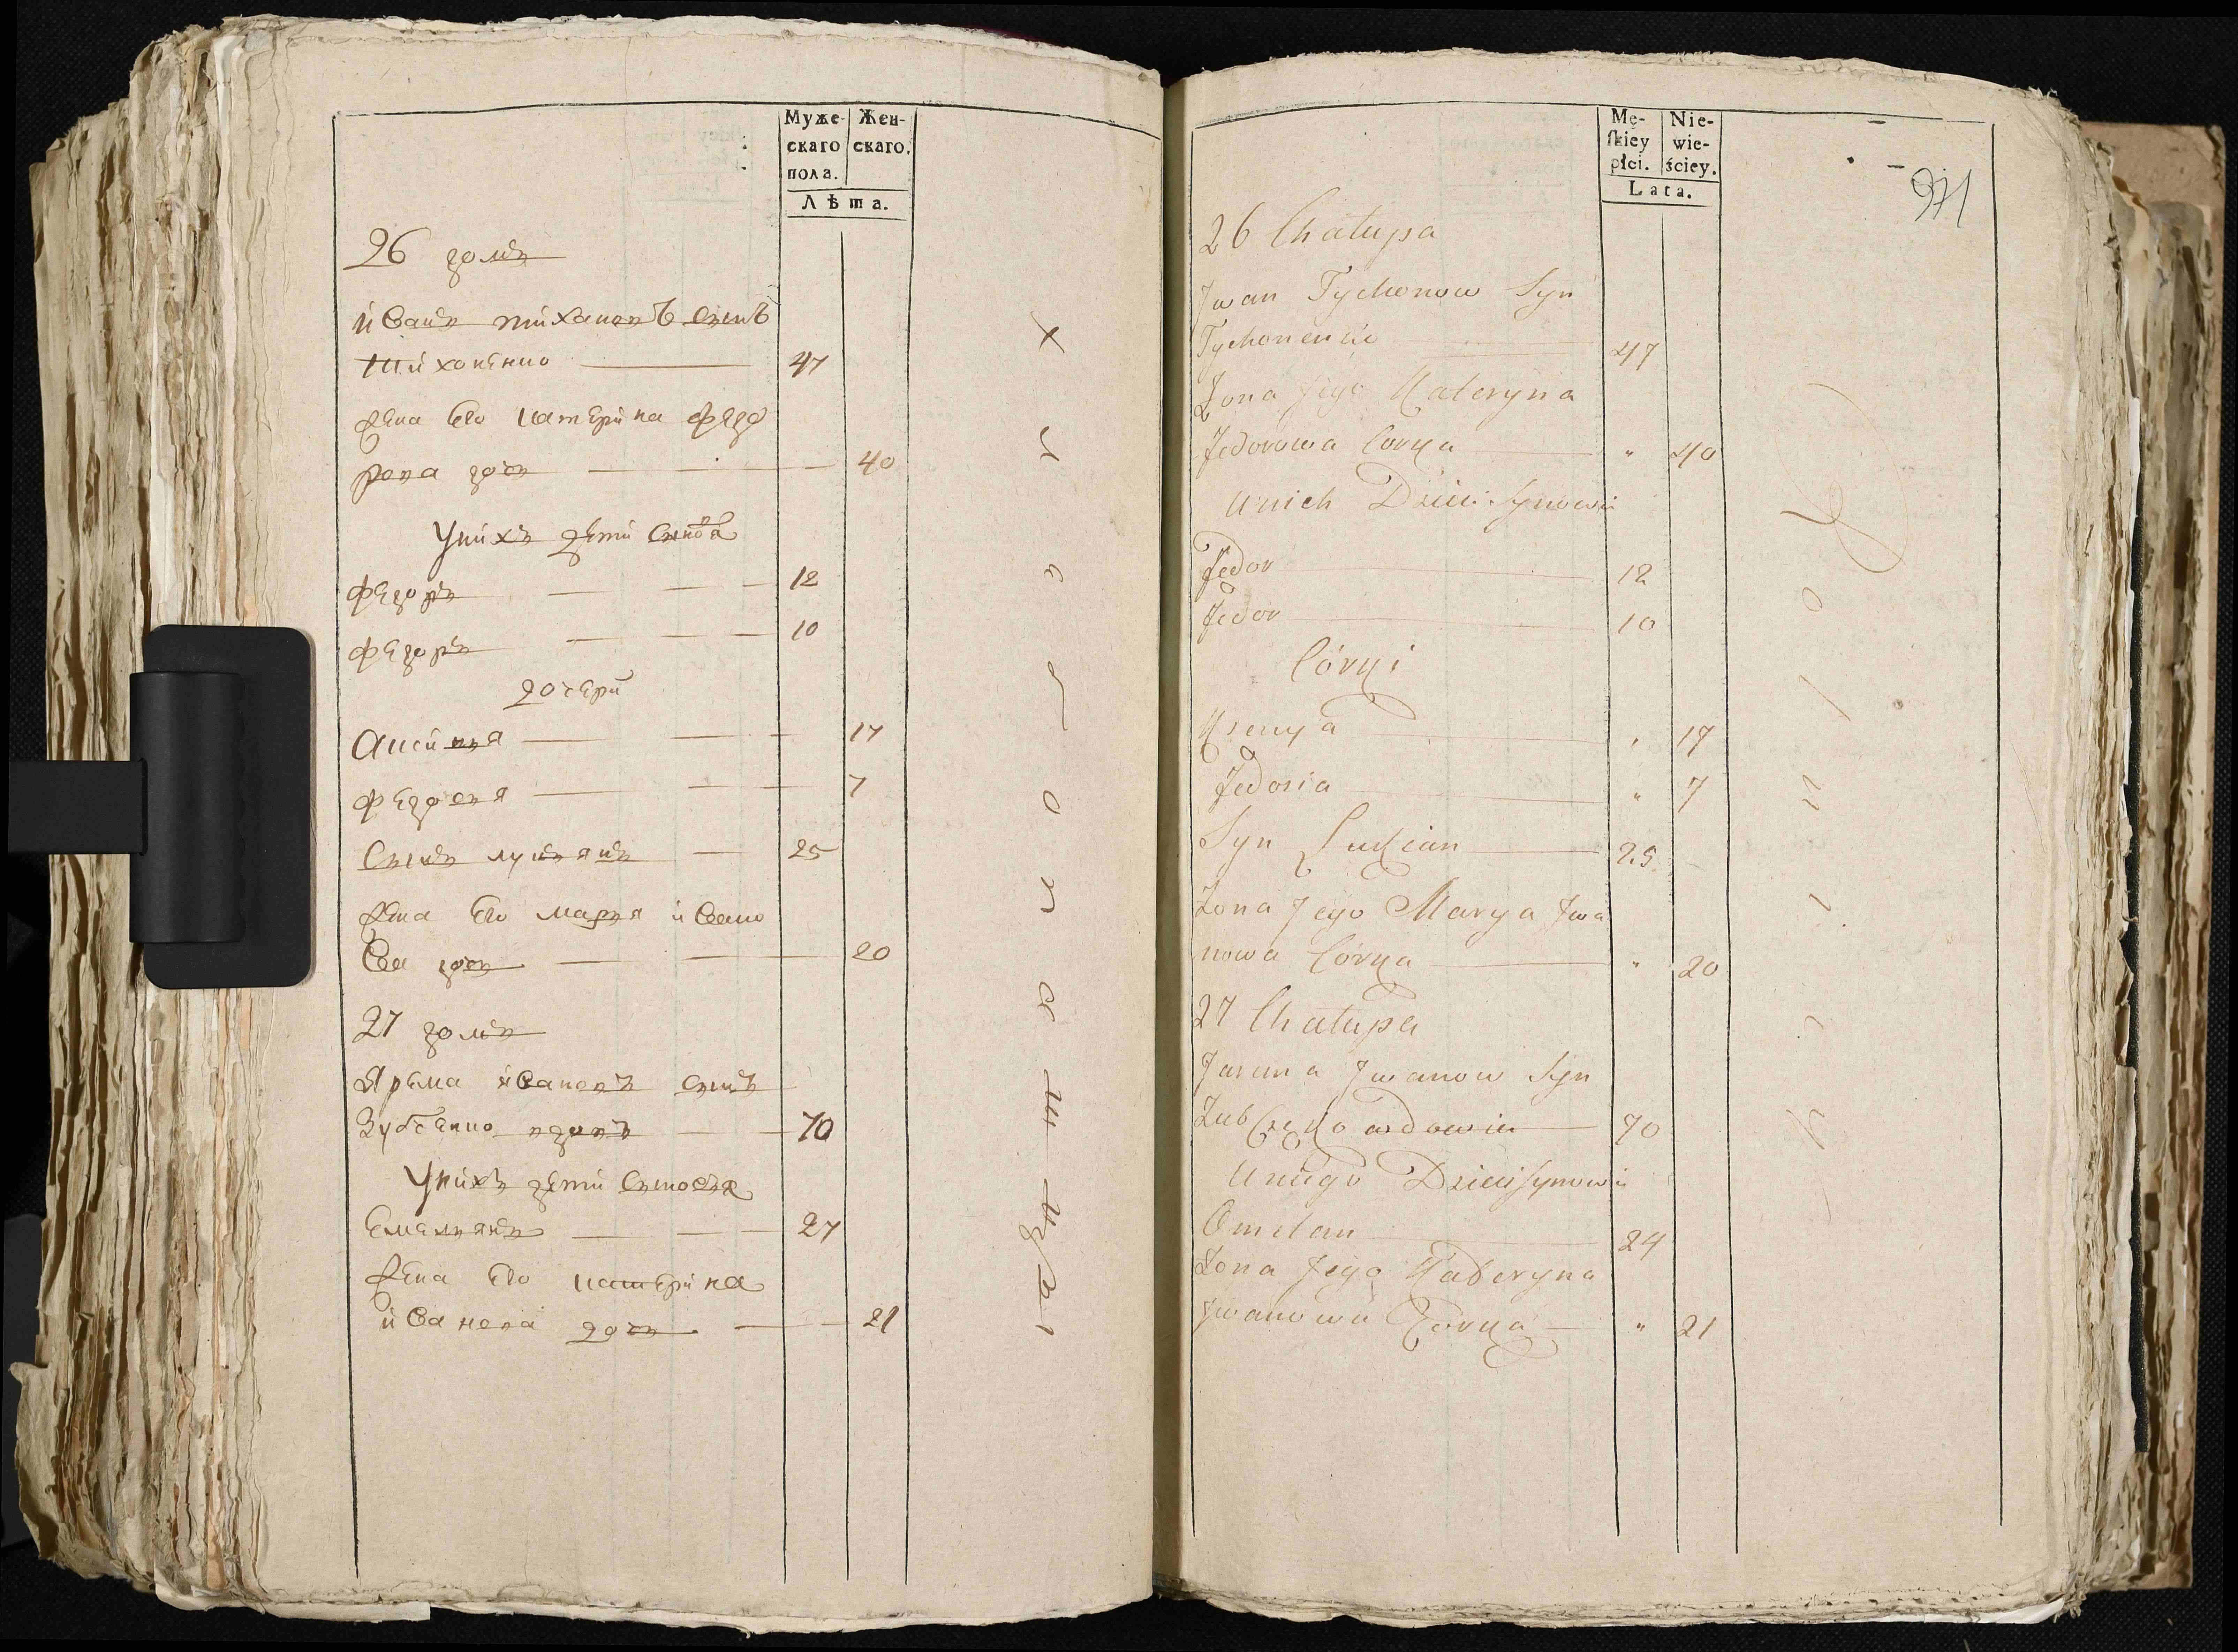 Муже-
скаго
пола.
Жен-
скаго.
Лѣта.
26 домъ
иванъ тихановъ сынъ
тихоненко 47
жена его катерина федо
рова дочь 40
У нихъ дети сыновя
федоръ 12
федоръ 10
дочери
Аксиня 17
федося 7
Сынъ лукянъ 25
жена его маря ивано
ва дочь 20
27 домъ
Ярема ивановъ сынъ
Зубченко вдовъ 70
У нихъ дети сыновя
Емелянъ 27
жена его катерина
иванова дочь 21
Mę-
ſkiey
płci.
Nie-
wie-
ściey.
Lata.
971
26 Chałupa
Jwan Tychonow Syn
Tychonenko 47
Zona Jego Kateryna
Fedorowa Corka " 40
U nich Dzieci Synowie
Fedor 12
Fedor 10
Córki
Ksenya " 17
Fedosia " 7
Syn Lukian 25
Zona Jego Marya Jwa
nowa Córka " 20
27 Chałupa
Jarema Jwanow Syn
Zubczenko wdowiec 70
U niego Dzieci Synowie
Omelan 24
Zona Jego Kateryna
Jwanowa Córka " 21